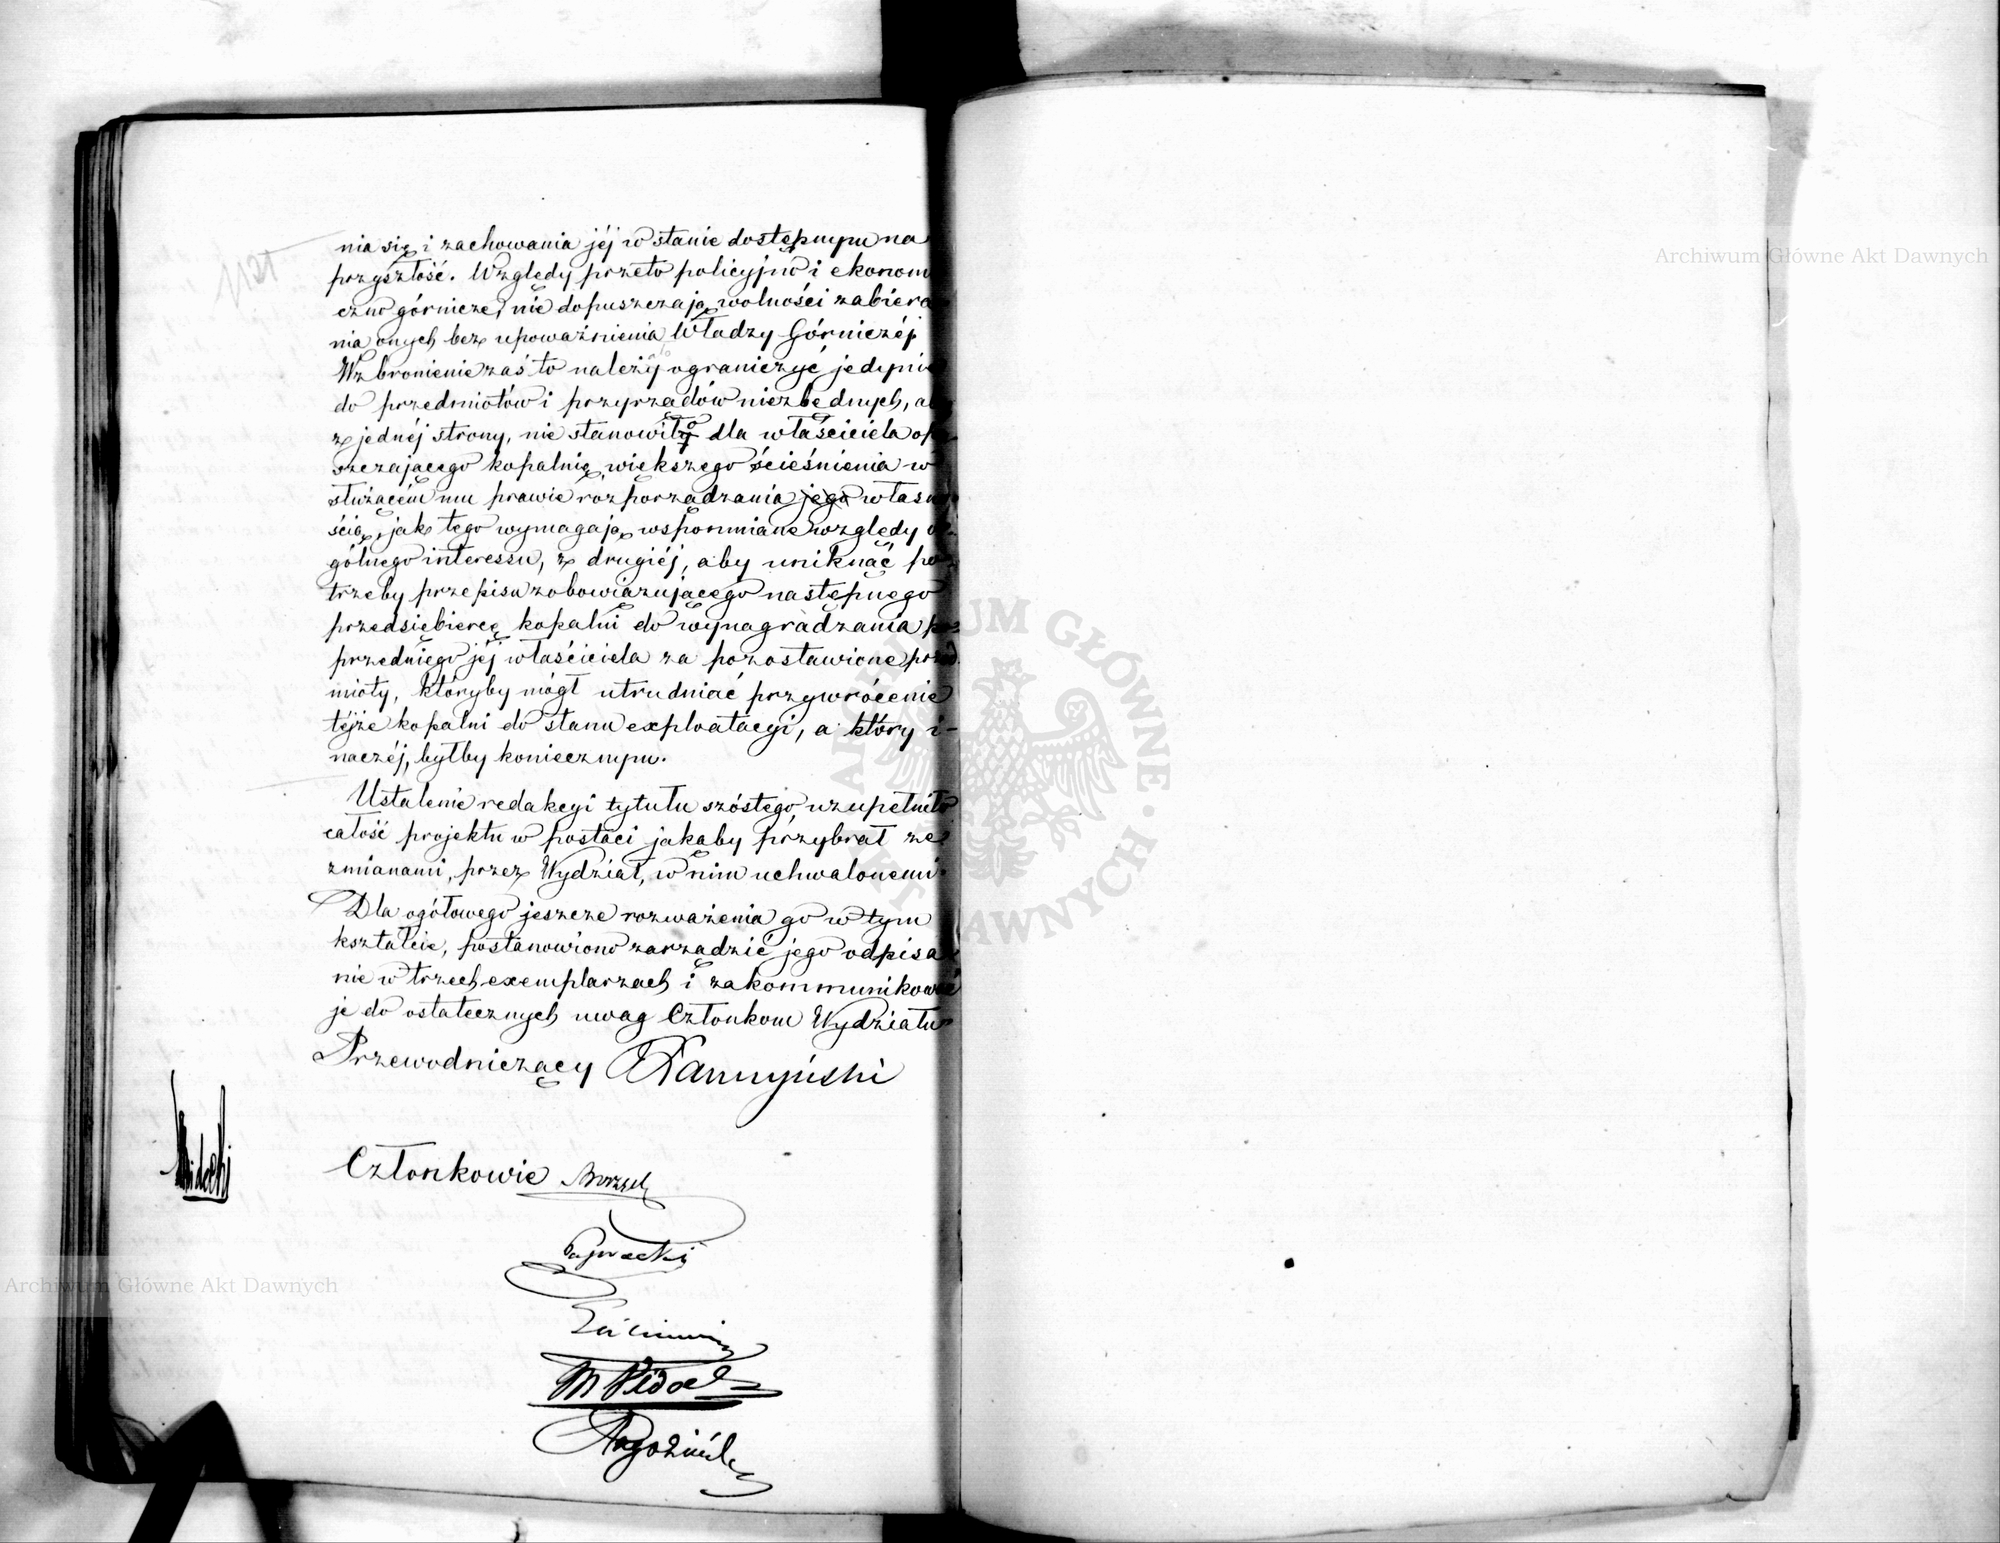 nia się i zachowania jéj w stanie dostępnym na
przyszłość. Względy przeto policyjno i ekonomi
czno górnicze, nie dopuszczają wolności zabiera
nia onych bez upoważnienia Władzy Górniczéj
Wzbronienie zaś to należy ograniczyć jedynie
do przedmiotów i przyrządów niezbędnych, aby
z jednéj strony, nie stanowiło dla właściciela opu
szczającego kopalnię większego ścieśnienia w
służącém mu prawie rozporządzania jego własno
ścią, jak tego wymagają wspomniane względy o
gólnego interessu, z drugiéj, aby uniknąć po
trzeby przepisu zobowiązującego następnego
przedsiębiercę kopalni do wynagradzania po
przedniego jéj właściciela za pozostawione przed
mioty, któryby mógł utrudniać przywrócenie
téjże kopalni do stanu exploatacyi, a który i-
naczéj, byłby koniecznym.
Ustalenie redakcyi tytułu szóstego, uzupełniło
całość projektu w postaci jakąby przybrał ze
zmianami, przez Wydział, w nim uchwalonemi.
Dla ogółowego jeszcze rozważenia go w tym
kształcie, postanowiono zarządzić jego odpisa
nie w trzech exemplarzach i zakommunikować
je do ostatecznych uwag Członkom Wydziału
Przewodniczący Łaszczyński
Członkowie
Archiwum Główne Akt Dawnych
Archiwum Główne Akt Dawnych
ARCHIWUM GŁÓWNE AKT DAWNYCH